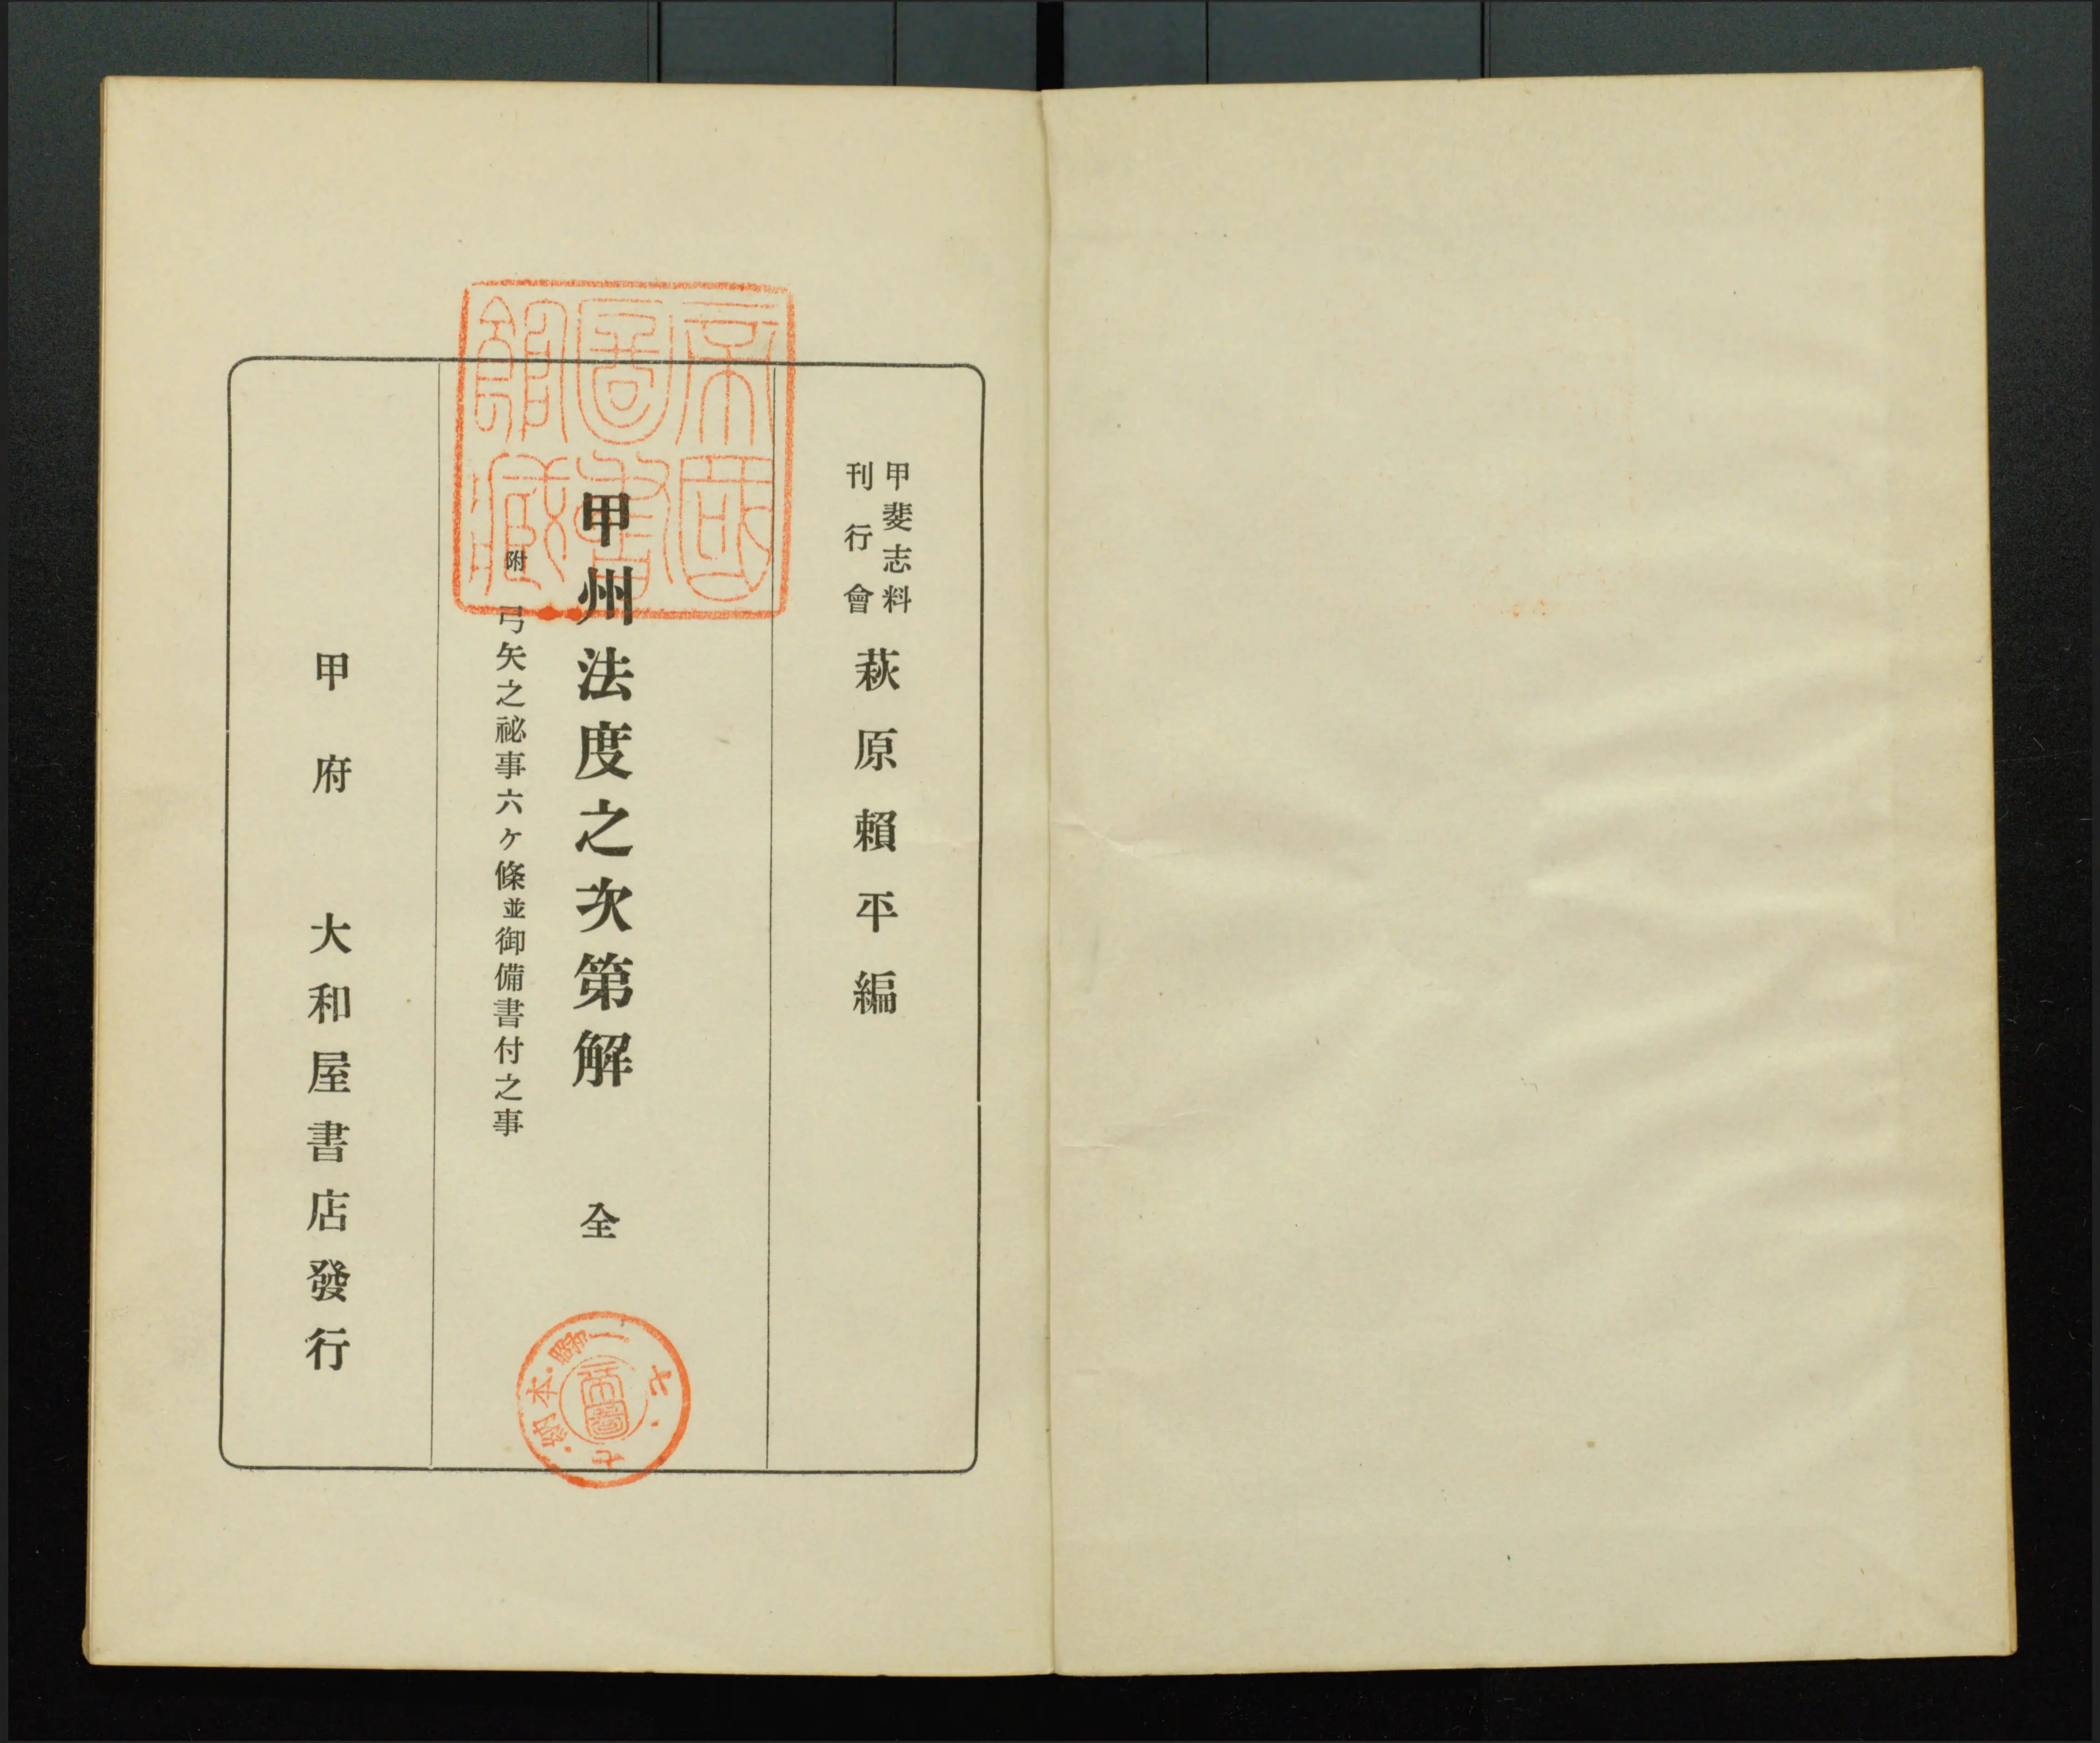 甲斐志料
刊行會
萩原賴平編
甲州法度之次第解 全
附 弓矢之祕事六ヶ條並御備書付之事
甲府 大和屋書店發行
帝國
圖書
館藏